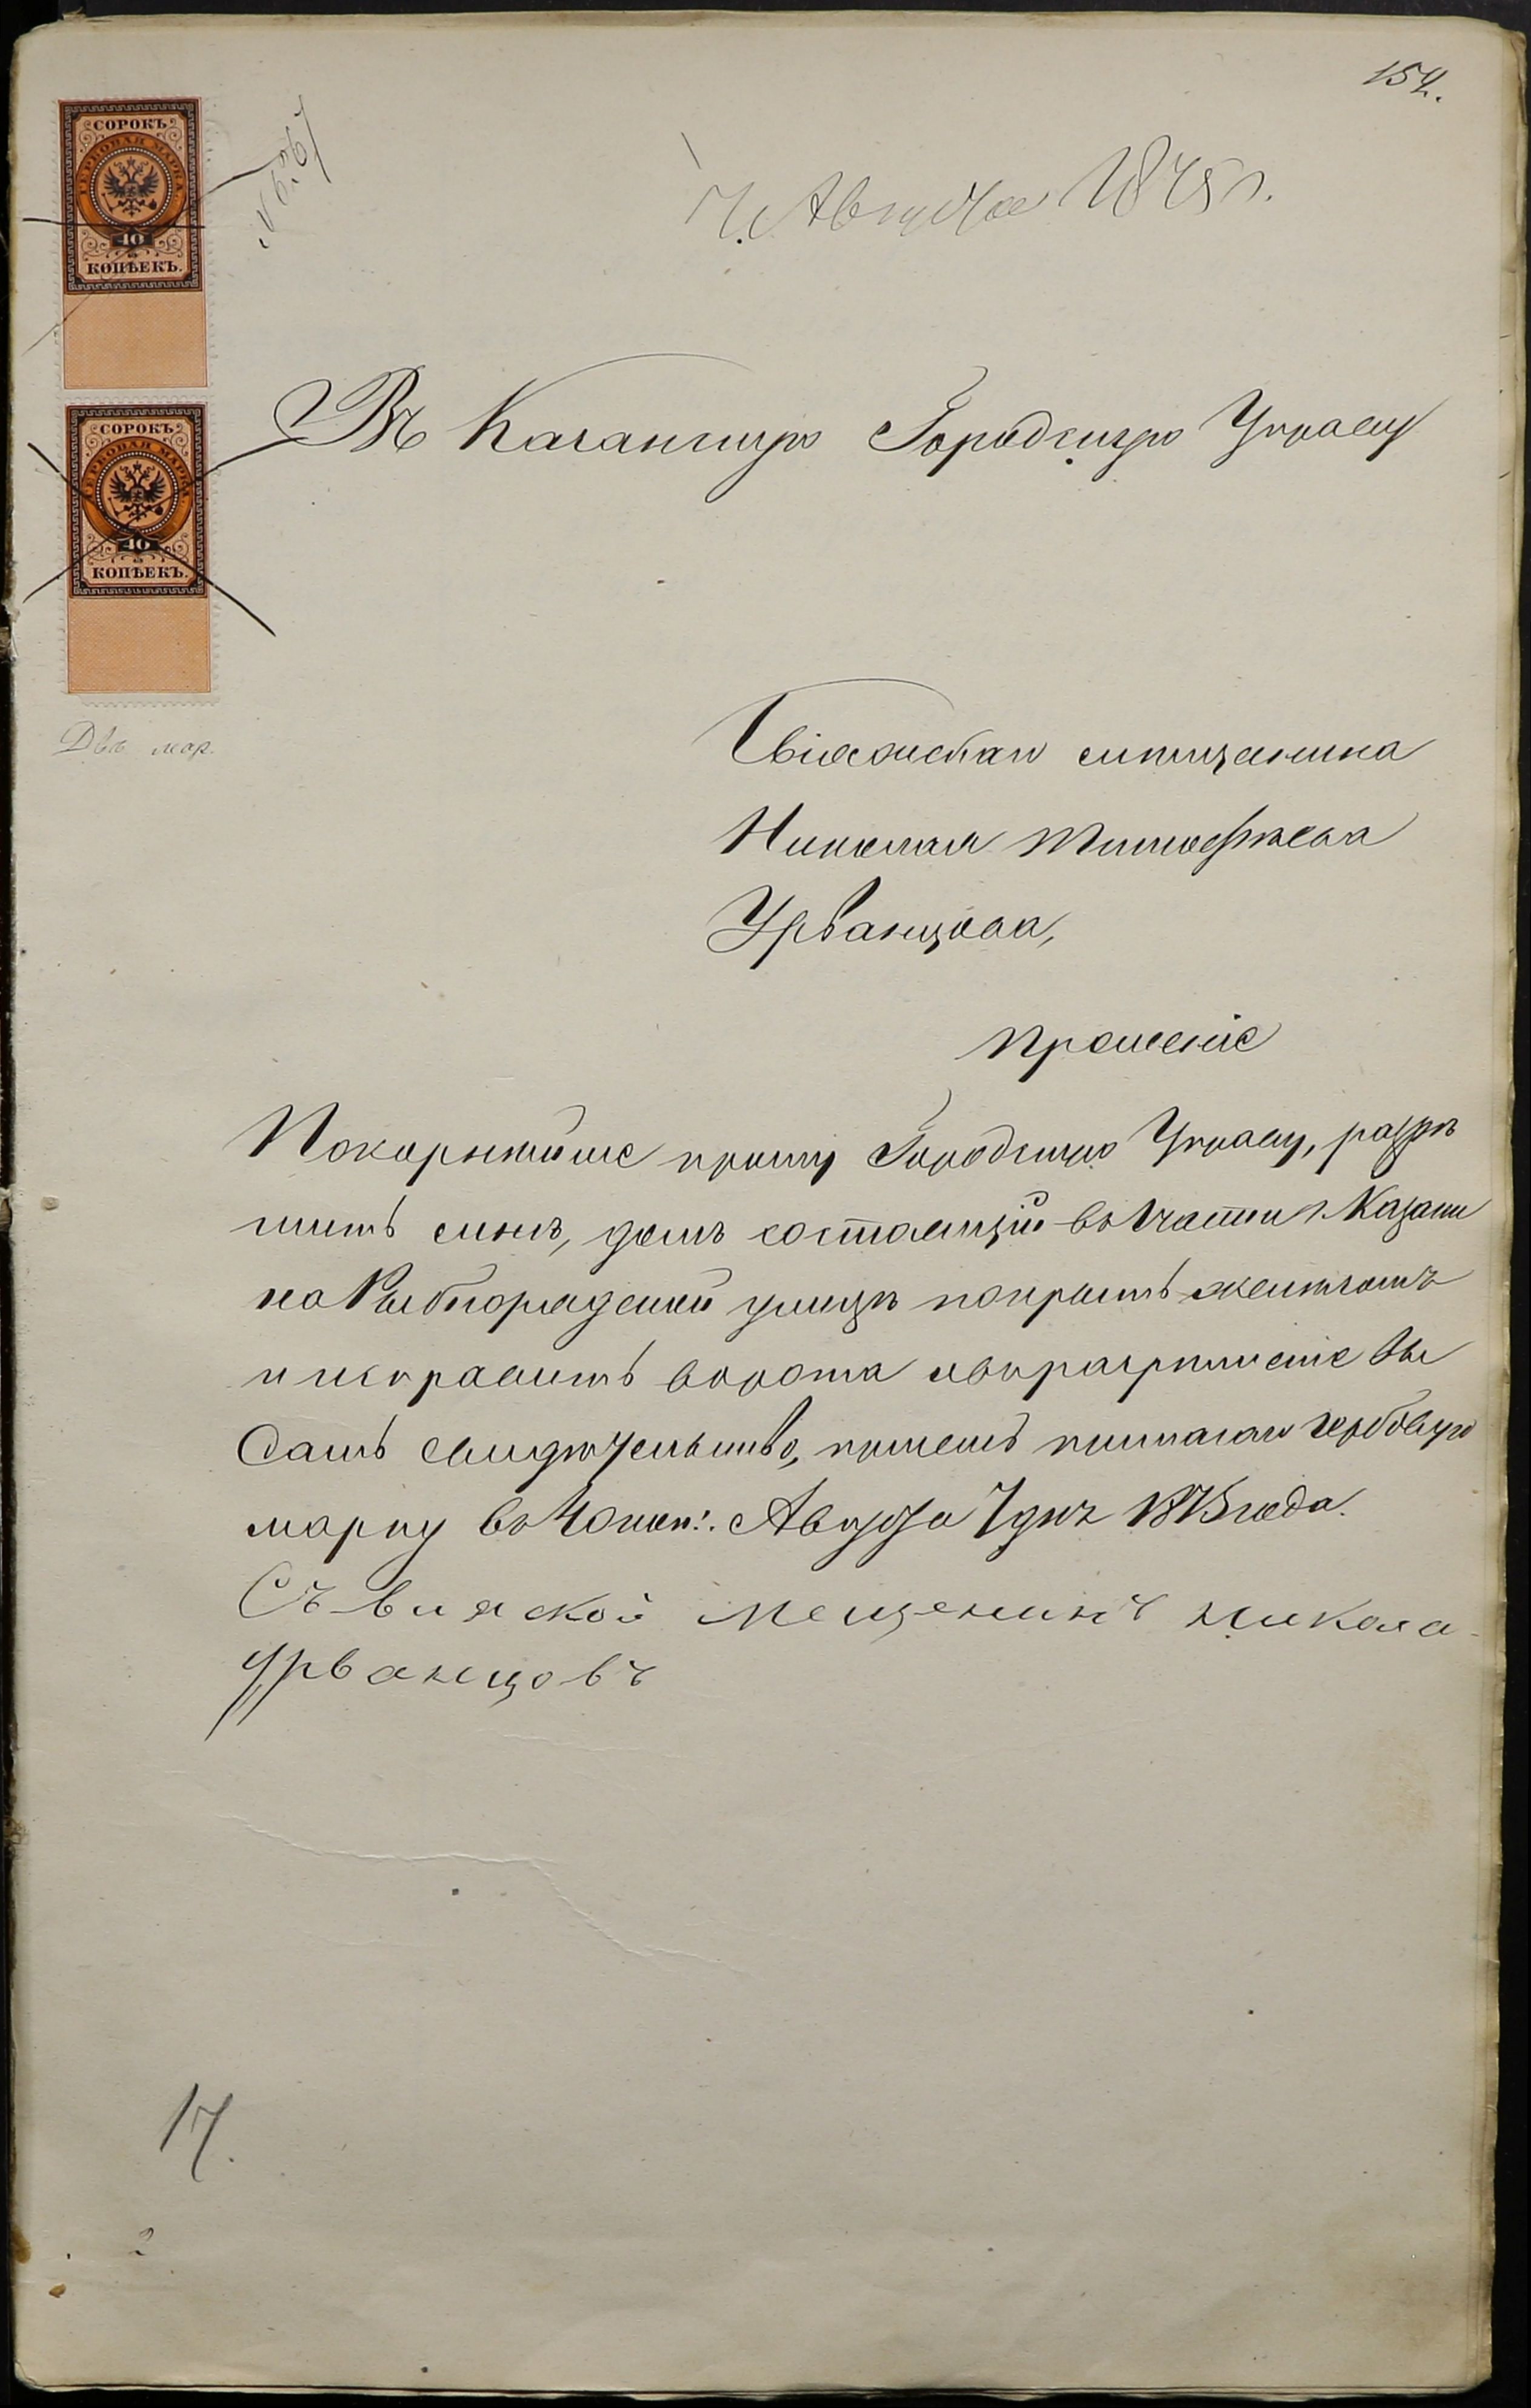 152.
7. Августа 1875 г.
СОРОКЪ
ГЕРБОВАЯ МАРКА
40
КОПѢЕКЪ.
СОРОКЪ
ГЕРБОВАЯ МАРКА
40
КОПѢЕКЪ.
Двѣ мар.
Въ Казанскую Городскую Управу
Свіяжскаго мѣщанина
Николая Тимофѣева
Урванцова,
Прошеніе
Покорнѣйше прошу Городскую Управу, разрѣ
шить мнѣ, домъ состоящій во части г. Казани
на Рыбнорядской улицѣ покрыть желѣзомъ
и исправить ворота
Дать свидѣтельство, при семъ прилагаю гербовую
марку въ 40 коп:. Августа 7 дня 1875 года.
Съвияской мещенинъ никола
Урванцовъ
17.
2